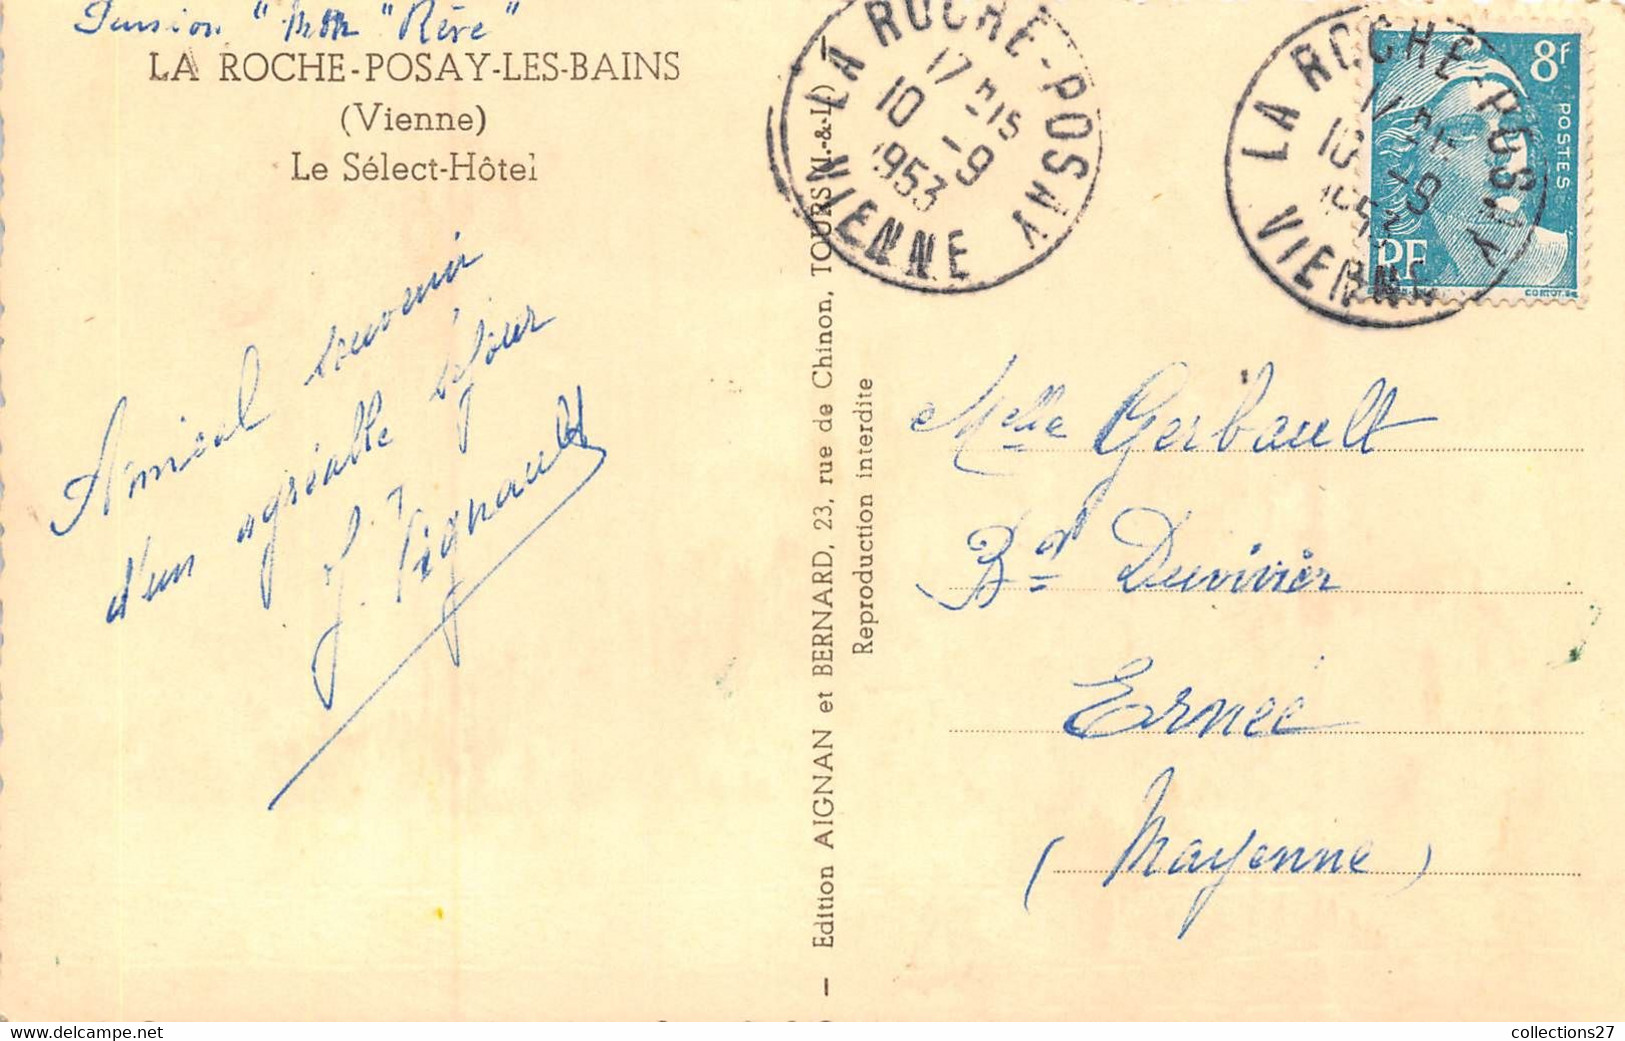 Pension "Mon Rêve"
LA ROCHE-POSAY-LES-BAINS
(Vienne)
Le Sélect-Hôtel
Amical souvenir
d'un agréable séjour
J. Vignault
Edition AIGNAN et BERNARD, 23, rue de Chinon, TOURS (I.-&-L.)
Reproduction interdite
LA ROCHE-POSAY
17 H 15
10 -9
1953
VIENNE
LA ROCHE-POSAY
10 -9
VIENNE
8F
POSTES
RF
CORTOT.SC
Melle Gerbault
Bd Duvivier
Ernée
(Mayenne)
collections27